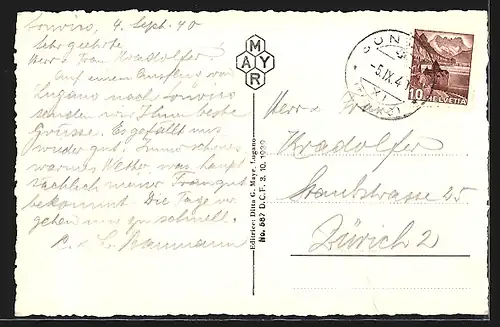 Sonvico, 4. Sept. 40
Sehr geehrte
Herr u. Frau Kradolfer
Auf einem Ausflug von
Lugano nach Sonvico
senden wir Ihnen beste
Grüsse. Es gefällt uns
wieder gut. Immer schönes
warmes Wetter was haupt
sächlich meiner Frau gut
bekommt. Die Tage ver
gehen nur zu schnell.
Baumann
MAYR
MAYR
Editrice: Ditta G. Mayr, Lugano
No. 587 D.C.F. 3. 10. 1929
SON
-5.IX.4
10 HELVETIA
Herr u.
Kradolfer
Staubstrasse 25
Zürich 2